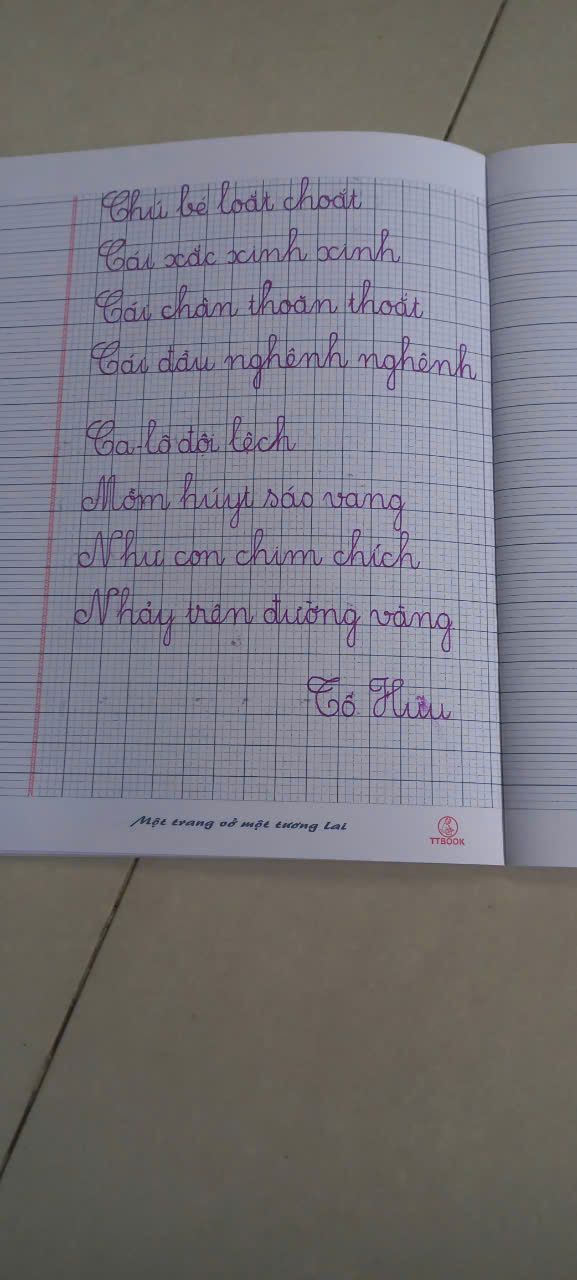 Chú bé loắt choắt
Cái xắc xinh xinh
Cái chân thoăn thoắt
Cái đầu nghênh nghênh
Ca-lô đội lệch
Mồm huýt sáo vang
Như con chim chích
Nhảy trên đường vàng
Tố Hữu
Một trang vở một tương lai
TTBOOK